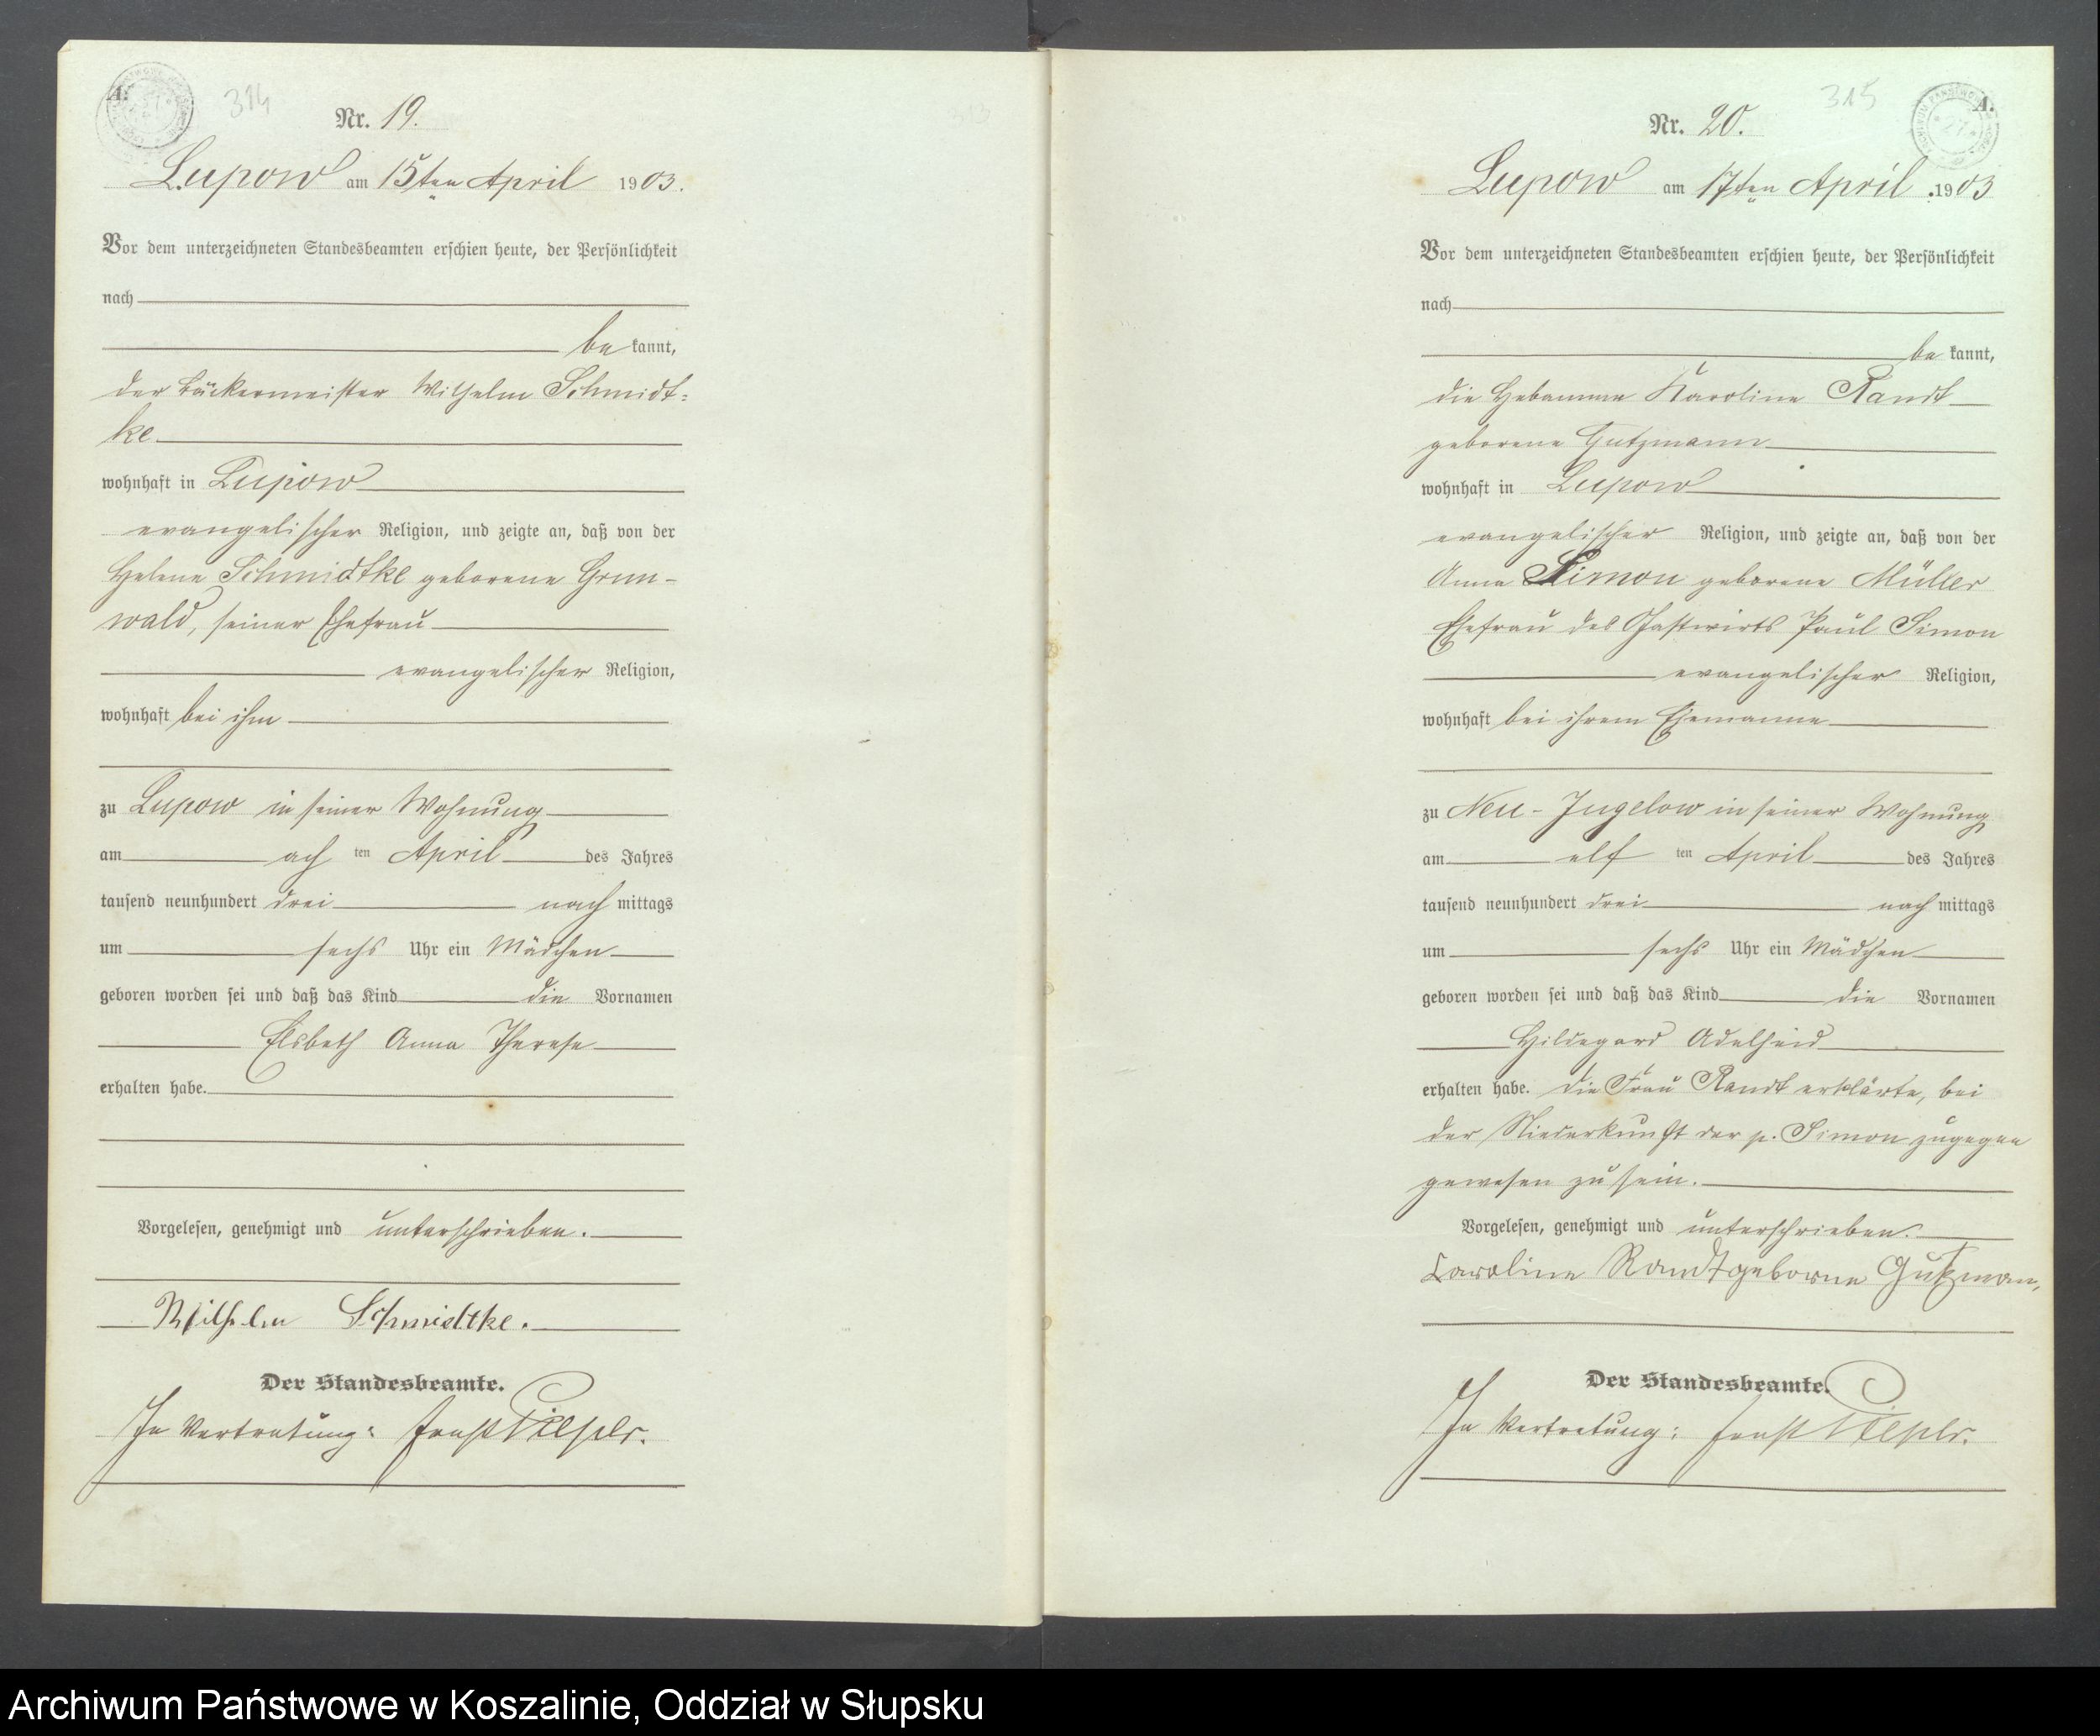 A.
314
Nr. 19.
Lupow am 15ten April 1903.
Vor dem unterzeichneten Standesbeamten erschien heute, der Persönlichkeit
nach
be kannt,
der Bäckermeister Wilhelm Schmidt=
ke
wohnhaft in Lupow
evangelischer Religion, und zeigte an, daß von der
Helene Schmidtke geborene Grun-
wald, seiner Ehefrau
evangelischer Religion,
wohnhaft bei ihm
zu Lupow in seiner Wohnung
am ach ten April des Jahres
tausend neunhundert drei nach mittags
um sechs Uhr ein Mädchen
geboren worden sei und daß das Kind die Vornamen
Elsbeth Anna Therese
erhalten habe.
Vorgelesen, genehmigt und unterschrieben.
Wilhelm Schmidtke.
Der Standesbeamte.
In Vertretung: Ernst
315
A.
Nr. 20.
Lupow am 17ten April 1903
Vor dem unterzeichneten Standesbeamten erschien heute, der Persönlichkeit
nach
be kannt,
die Hebamme Karoline Randt
geborene Gutzmann
wohnhaft in Lupow
evangelischer Religion, und zeigte an, daß von der
Anna Simon geborene Müller
Ehefrau des Gastwirts Paul Simon
evangelischer Religion,
wohnhaft bei ihrem Ehemanne
zu Neu-Jugelow in seiner Wohnung
am elf ten April des Jahres
tausend neunhundert drei nach mittags
um sechs Uhr ein Mädchen
geboren worden sei und daß das Kind die Vornamen
Hildegard Adelheid
erhalten habe. Die Frau Randt erklärte, bei
der Niederkunft der p. Simon zugegen
gewesen zu sein.
Vorgelesen, genehmigt und unterschrieben.
Caroline Randt geborne Gutzman,
Der Standesbeamte.
In Vertretung: Ernst
Archiwum Państwowe w Koszalinie, Oddział w Słupsku